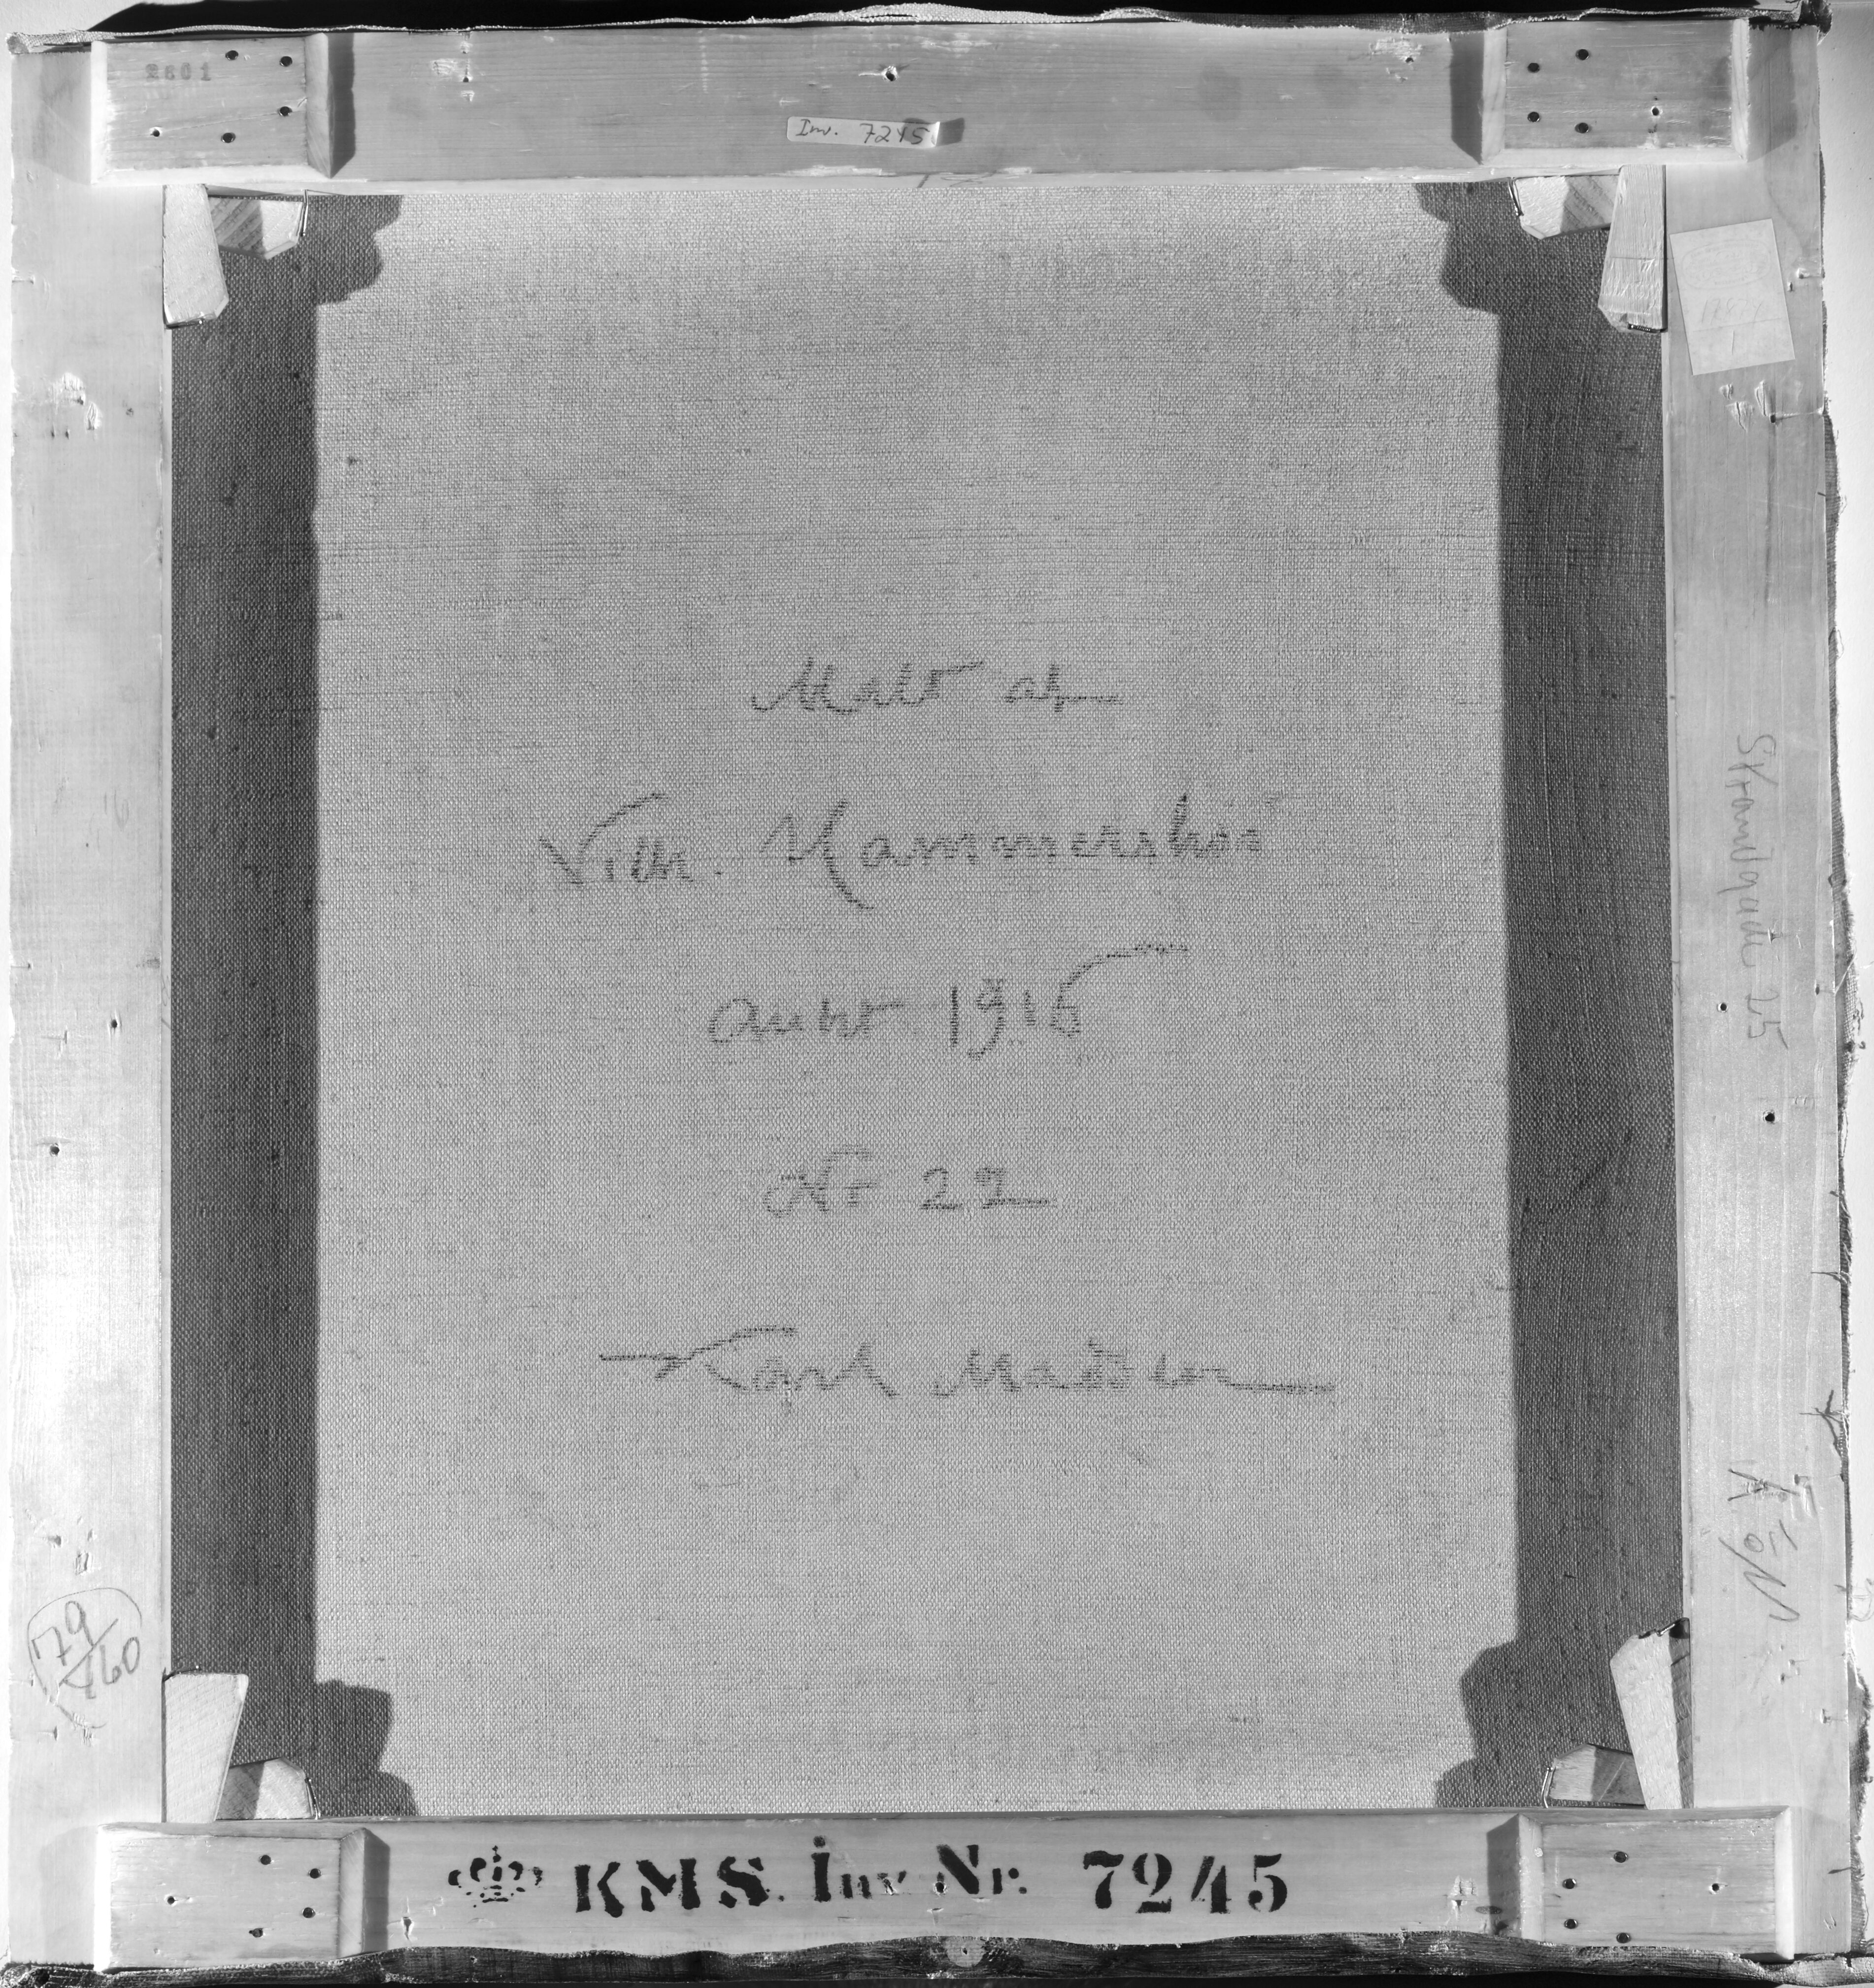 2601
Inv. 7245
Malt af
Vilh. Hammershöi
Aukt. 1916
Nr 22
Karl Madsen
Strandgade 25
79/460
KMS. Inv Nr. 7245